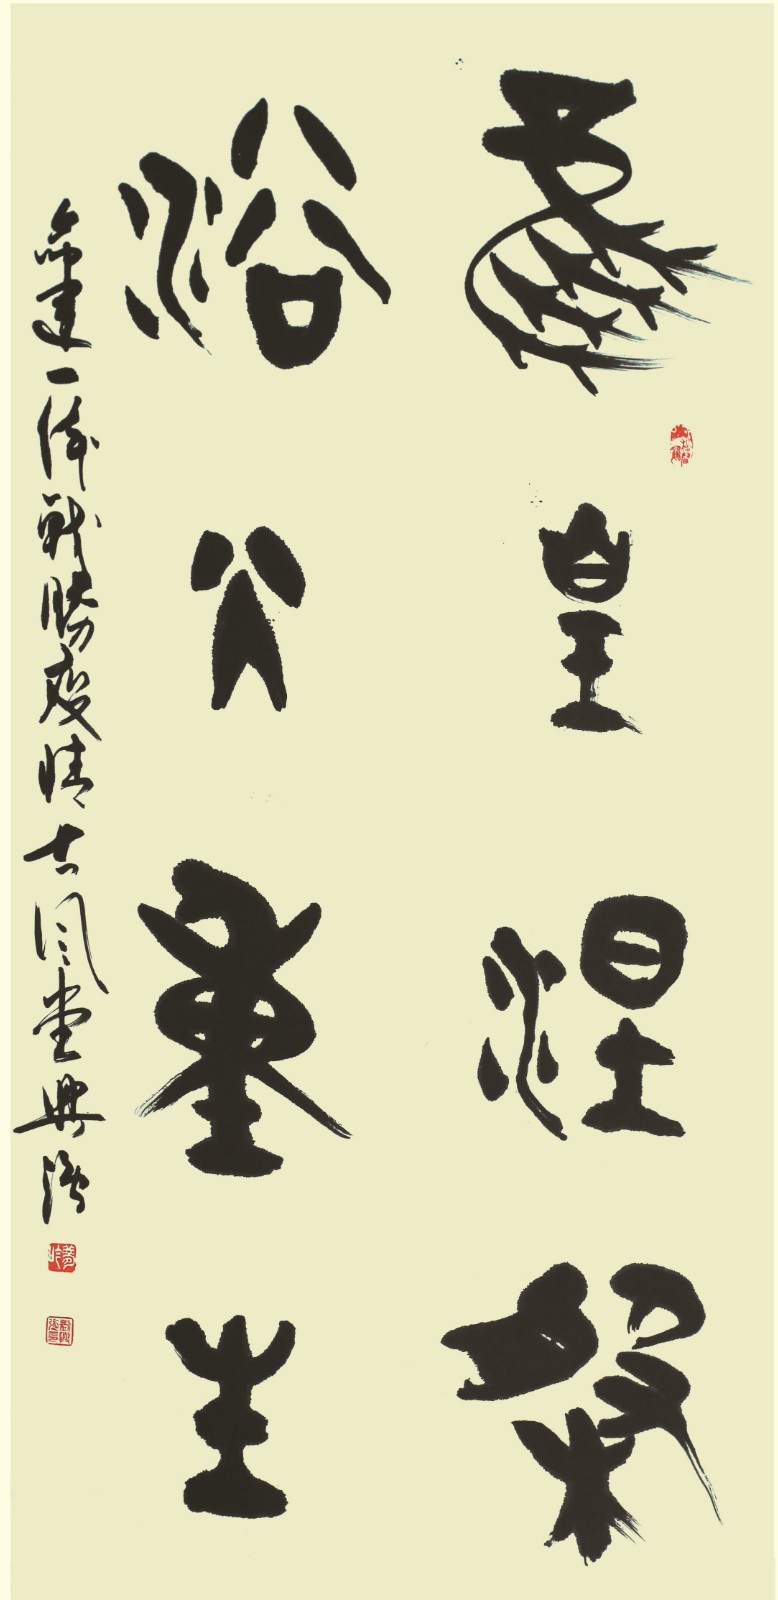 鳳皇涅槃
浴火重生
一體戰勝疫情古風堂興